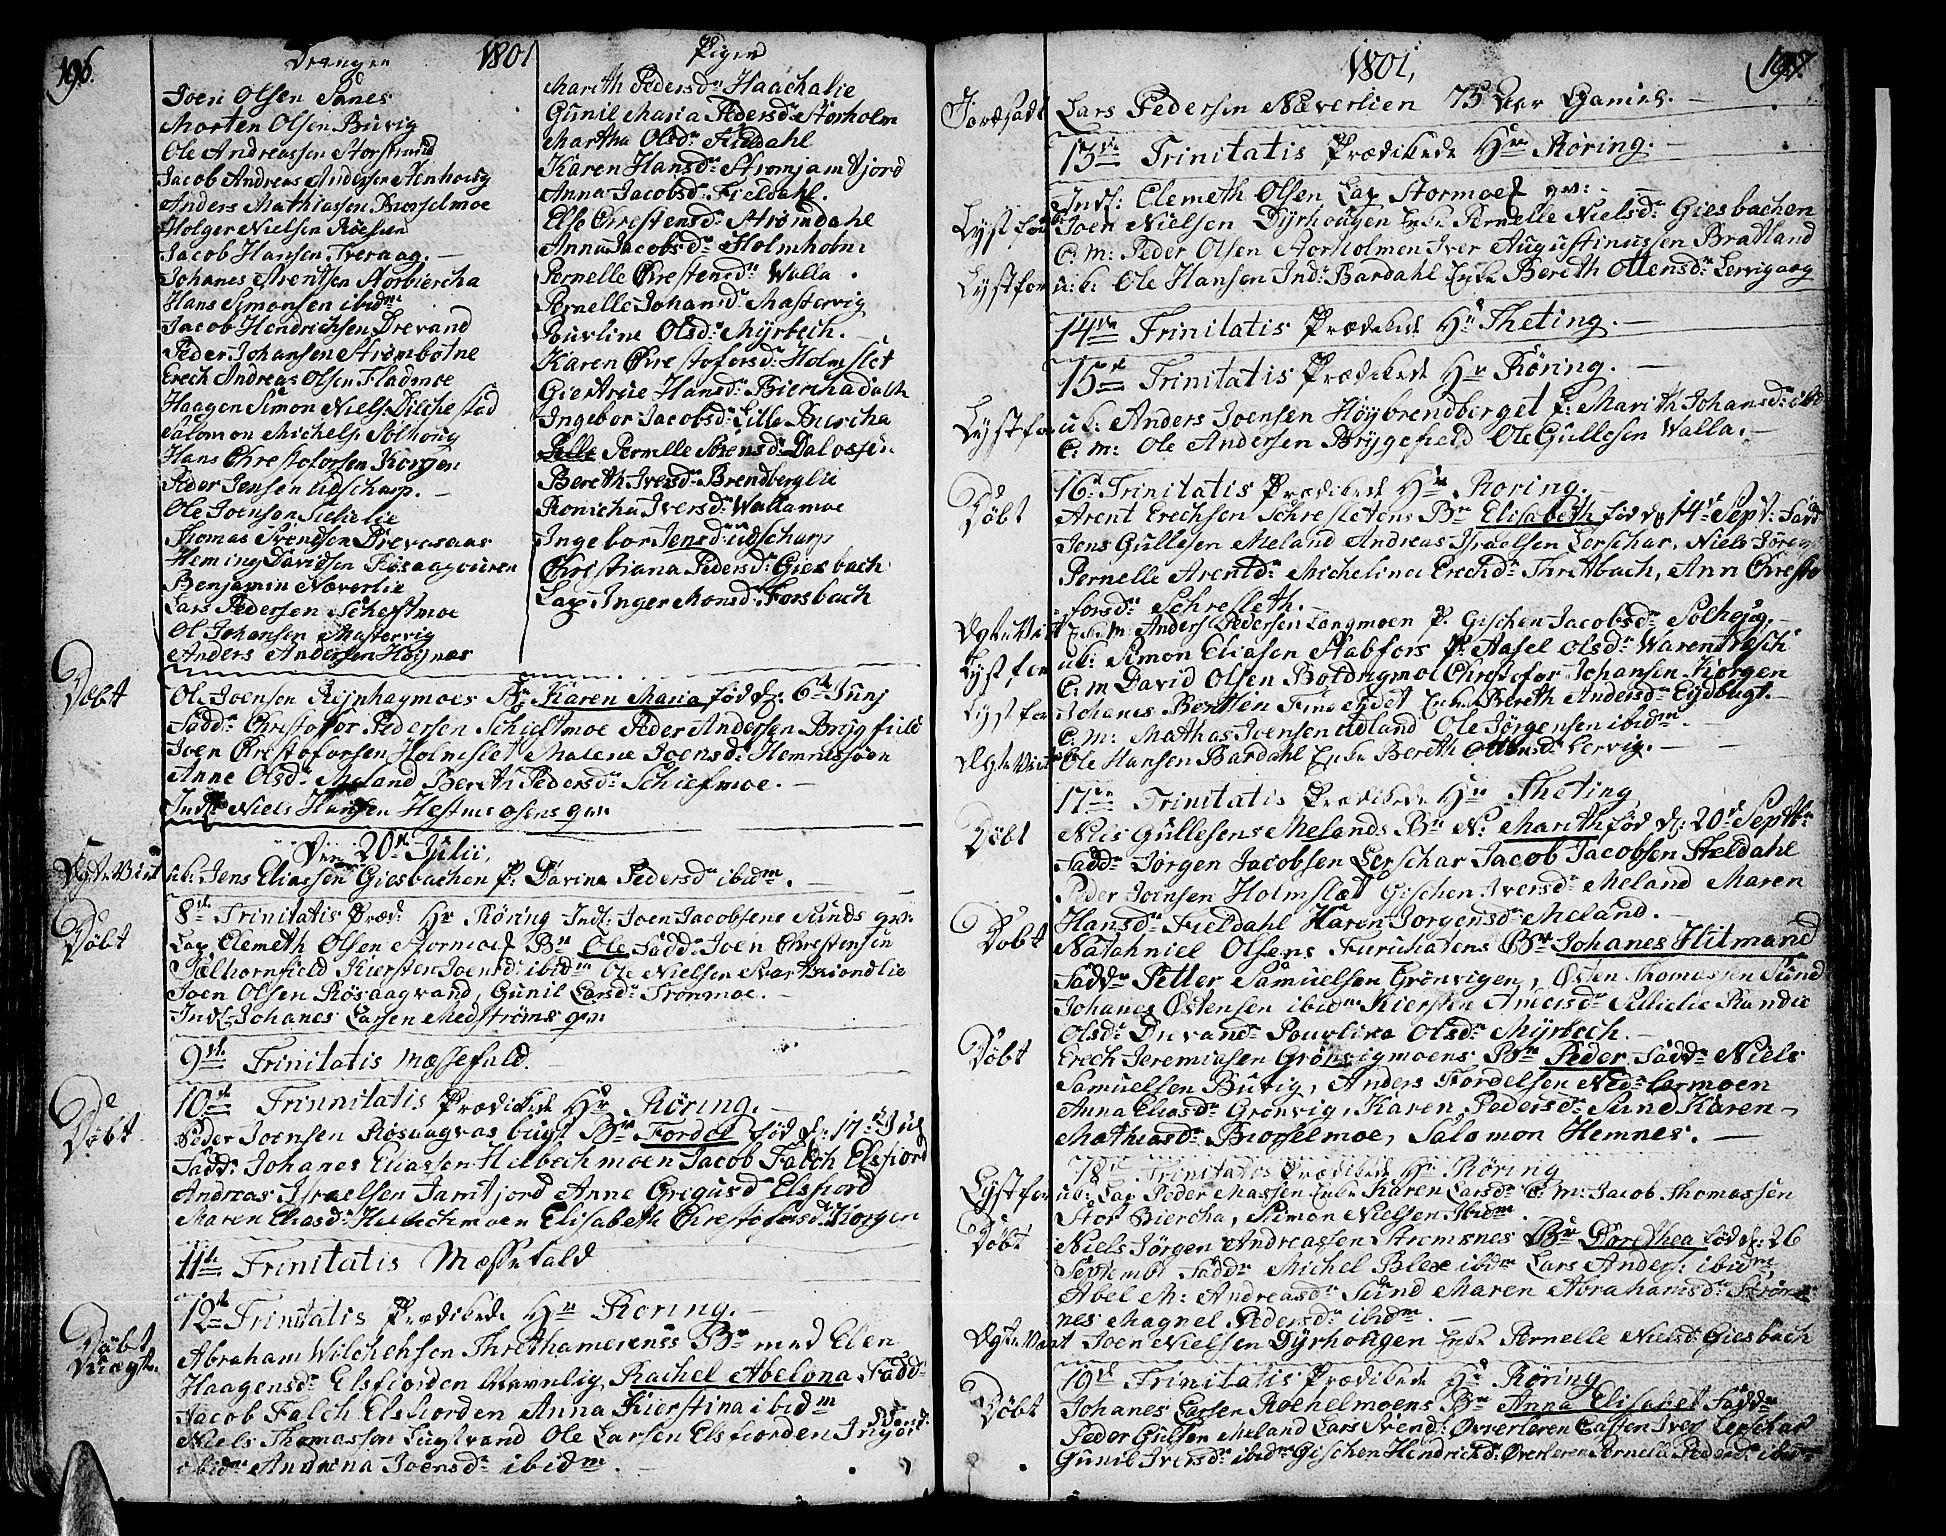 196.
Drenger 1801 Piger
Joen Olsen Sanes
Morten Olsen Buvig
Ole Andreassen Storstrand
Jacob Andreas Andersen Stenhoug
Anders Mathiassen Brosselmoe
Holger Nielsen Røesen
Jacob Hansen Tveraag. —
Johanes Arentsen Norbiercha
Hans Simonsen ibidm
Jacob Hendrichsen Drevand
Peder Johansen Strømbotne
Erech Andreas Olsen Fladmoe
Haagen Simon Niels Dilche stad
Salomon Michels Solhoug
Hans Chrestofersen Korgen
Peder Jensen Udscharp. —
Ole Joensen Sielelie
Thomas Svendsen Drevesaas
Heming Davidsen Røsaagouren
Benjamin Næverlie
Lars Pedersen Scheftmoe
Ol Johansen Mastervig
Anders Andersen Høynæs
Marith Pedersd Haachalie
Gunil Maria Pedersd Storholm
Martha Olsd Fieldahl
Karen Hansd Strømjamtfjord
Anna Jacobsd Fieldahl.
Else Chrestensd Strømdahl
Anna Jacobsd Holmholm
Pernelle Chrestensd Walla .
Pernelle Johansd Mastervig
Pouline Olsd Myrbech.
Karen Chrestofersd Holmslet
Giertrue Hansd Bierchadalh
Ingebor Jacobsd Lille Burcha
Pelle Pernelle Sørensd Dalosen
Bereth Iversd Brendberglie
Ronicha Iversd Wallamoe
Ingebor Jensd udscharp
Christiana Pedersd Giesbach
Lap Inger Monsd Forsbach
Døbt Ole Joensen Rejnhaymoes Br Karen Maria fød d: 6te Junj
Fadd: Chrestofer Pedersen Schieftmoe Peder Andersen Brygfield
Joen Chrestofersen Holmslet Malene Joensd Hemnessøen
Anne Olsd Meland Bereth Pedersd Schiefmoe. —
Indl: Niels Hansen Hestnesosens qvn
Den 20de Julii,
Egte Viet u:b: Jens Eliassen Giesbachen P: Davina Pedersd ibidm. —
Døbt 8de Trinitatis Præd: Hr Røring Indl: Joen Jacobsens Sunds qvn:
Lap Clemeth Olsen Stormoes Br Ole Fadd: Joen Chrestensen
Kierstin Joensd ibidm Ole Nielsen
Joen Olsen Røsaagvand, Gunil Larsd Tronmoe. —
Indl: Johanes Larsen Medstrøms qvn
9de Trinitatis Messefald.
Døbt 10de Trinnitatis Prædikede Hr Røring. —
Peder Joensen Røsaagvas bugt Br Fordel fød d: 17: Julj
Fadd: Johanes Eliassen Helbechmoen Jacob Falch Elsfiord
Andreas Israelsen Jamtjord Anne Gregusd Elsfiord
Maren Eliasd Helbechmoen Elisabeth Chrestofersd Korgen
11de Trinitatis Messefald
Døbt 12te Trinitatis Prædikede Hr Røring. —
Abraham Wilchehson Br med Elen
Haagensd Elsfiorden Rachel Abelona Fadd:
Jacob Falch Elsfiorden Anna Kierstina ibidm
Niels Thomassen Lugtvand Ole Larsen Elsfiorden
ibidm Andræna Joensd ibidm.
197.
1801,
Jordfæstet Lars Pedersen Næverlien 75 Aar Gamel. —
13de Trinitatis Prædikede Hr Røring. —
Indl: Clemeth Olsen Lap Stormoes qv: —
Lyst for Joen Nielsen Dyrhougen Enke Pernelle Nielsd Giesbachen
C: M: Peder Olsen Storholmen Iver Augustinussen Bratland
Lyst for u:b: Ole Hansen Ind: Bardahl Enke Bereth Ottensd Lervigaag
14de Trinitatis Prædikede Hr Theting. —
15de Trinitatis Prædikede Hr Røring. —
Lyst for u:b: Anders Joensen Høybrendberget P: Marith Johansd ibd
C: M: Ole Andersen Brygefield Ole Gullesen Walla. —
16de Trinitatis Prædikede Hr Røring. —
Døbt Arent Erechsen Schresletens Br Elisabeth fød d: 14de Sept: Fadd
Jens Gullesen Meland Andreas Israelsen Lerschar, Niels Jøren
Pernelle Arentd Michelina Erechsd Bach, Ann Chresto
forsd Schresleth.
Egte Viet E: M: Anders Pedersen Langmoen P: Gischen Jacobsd Solhoug. —
Lyst for u:b: Simon Eliasen Stabfors P: Aasel Olsd Warentresch
C: M David Olsen Chrestofer Johansen Korgen
Lyst for Johanes Bentsen Enke Bereth Andersd Eydbugt. —
C: M: Mathas Ivensen Udland Ole Jørgensen ibidm. —
Egte Viet Ole Hansen Bardahl Enke Bereth Ottensd Lervig. —
17de Trinitatis Prædikede Hr Theting
Døbt Niels Gullesens Melands Br N: Marith fød d: 20de Septbr
Fadd: Jørgen Jacobsen Lerschar Jacob Jacobsen Steldahl
Peder Joensen Holmslæt Gischen Iversd Meland Maren
Hansd Fieldahl Karen Jorgensd Meland. —
Døbt Natahniel Olsens Furuhatens Br Johanes Hitmand
Fadd: Petter Samuelsen Grønvigen, Østen Thomassen Sund
Johanes Østensen ibidm Kierstin Andersd Randie
Olsd Pourlina Olsd Myrbech. —
Døbt Erech Jeremiasen Grønvigmoens Br Peder Fadd: Niels
Samuelsen Buvig, Anders Fordelsen Ned: Lermoen
Anna Eliasd Grønvig, Karen Pedersd Sund Karen —
Mathiasd Brosselmoe, Salomon Hemnes. —
18de Trinitatis Prædikede Hr Røring
Lyst for u:b: Lap Peder Massen Enke Karen Larsd C: M: Jacob Thomassen
Stor Biercha, Simon Nielsen Ibidm.
Døbt Niels Jørgen Andreassen Strømsnes Br Dorethea fød d: 26
Septembr Fadd: Michel Blex ibidm Lars Anders: ibidm
Abel M: Andreasd Sund Maren Abrahamsd Strøms
nes Magnel Pedersd ibidm. —
Egte Viet Joen Nielsen Dyrhougen Enke Pernelle Nielsd Giesbach
19de Trinitatis Prædikede Hr Røring
Døbt Johanes Larsen Rochelmoens Br Anna Elisabet Fadd:
Peder Gulsen Meland Lars Svend: Øverleren Iver Lerschar
Gunil Iversd ibidm Gischen Hendrichsd Øverleren Pernella Pedersd ibidm